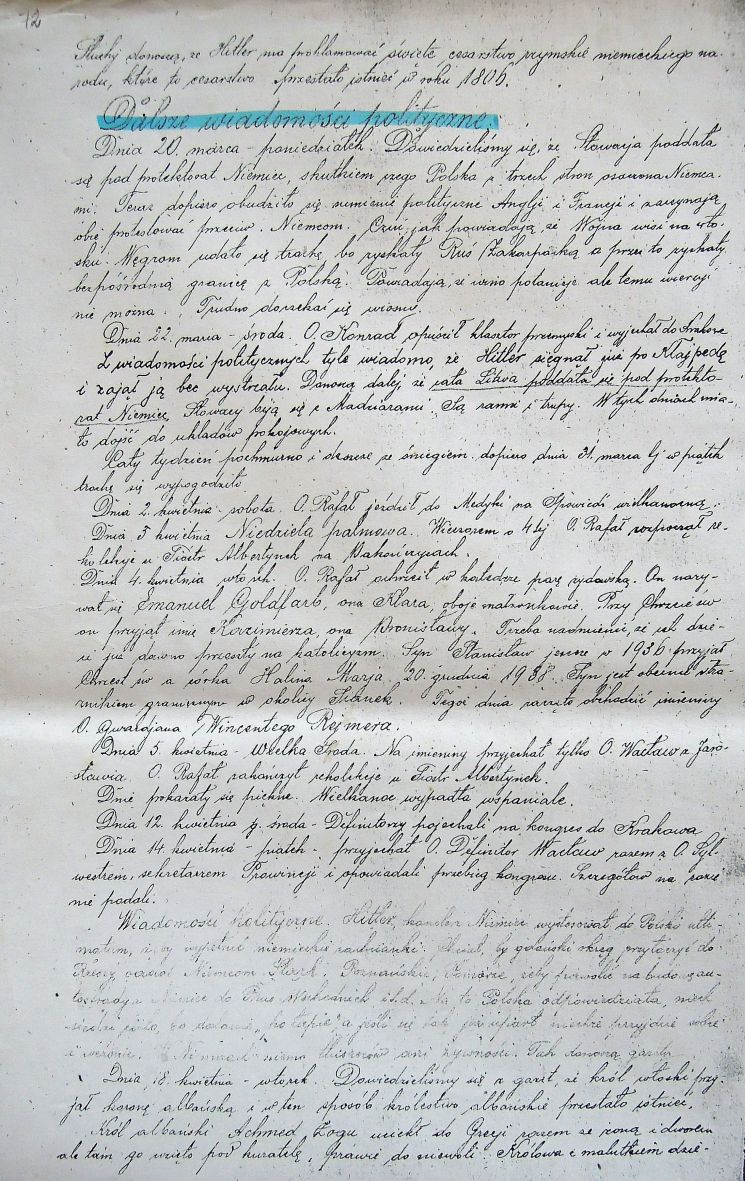 12
Słuchy donoszą, że Hitler ma proklamować święte cesarstwo rzymskie niemieckiego na-
rodu, które to cesarstwo przestało istnieć w roku 1806.
Dalsze wiadomości polityczne.
Dnia 20. marca - poniedziałek. Dowiedzieliśmy się, że Słowacja poddała
się pod protektorat Niemiec, skutkiem czego Polska z trzech stron osaczona Niemca-
mi. Teraz dopiero obudziło się sumienie polityczne Anglji i Francji i zaczynają
obie protestować przeciw Niemcom. Czuć, jak powiadają, że Wojna wisi na wło-
sku. Węgrom udało się trochę, bo zyskały Ruś Zakarpacką a przez to zyskały
bezpośrednią granicę z Polską. Powiadają, iż wino potanieje ale temu wierzyć
nie można. Trudno doczekać się wiosny.
Dnia 22. marca - środa. O. Konrad opuścił klasztor przemyski i wyjechał do Krakowa
Z wiadomości politycznych tyle wiadomo, że Hitler sięgnął już po Kłajpedę
i zajął ją bez wystrzału. Donoszą dalej, że cała Litwa poddała się pod protekto-
rat Niemiec. Słowacy biją się z Madziarami. Są ranni i trupy. W tych dniach mia-
ło dojść do układów pokojowych.
Cały tydzień pochmurno i deszcze ze śniegiem. dopiero dnia 31. marca tj w piątek
trochę się wypogodziło
Dnia 2. kwietnia - sobota. O. Rafał jeździł do Medyki na Spowiedź wielkanocną.
Dnia 3 kwietnia Niedziela palmowa. Wieczorem o 4tej O. Rafał rozpoczął re-
kolekcje u Sióstr Albertynek na
Dnia 4. kwietnia wtorek. O. Rafał ochrzcił w katedrze parę żydowską. On nazy-
wał się Emanuel Goldfarb, ona Klara, oboje małżonkowie. Przy Chrzcie św
on przyjął imię Kazimierza, ona Bronisławy. Trzeba nadmienić, że ich dzie-
ci już dawno przeszły na katolicyzm. Syn Stanisław jeszcze w 1936 przyjął
Chrzest św a córka Halina Marja 20. grudnia 1938. Syn jest obecnie stra-
żnikiem granicznym w okolicy Sianek. Tegoż dnia zaczęto obchodzić imieniny
O. Gwardjana Wincentego Rejmera.
Dnia 5. kwietnia - Wielka Środa. Na imieniny przyjechał tylko O. Wacław z Jaro-
sławia. O. Rafał zakończył rekolekcje u Sióstr Albertynek.
Dnie pokazały się piękne. Wielkanoc wypadła wspaniale.
Dnia 12. kwietnia tj. środa - Definitorzy pojechali na kongres do Krakowa
Dnia 14. kwietnia - piątek - przyjechał O. Definitor Wacław razem z O. Syl-
westrem, sekretarzem Prowincji i opowiadali przebieg kongresu. Szczegółów na razie
nie podali.
Wiadomości Polityczne. Hitler, kanclerz Niemiec wystosował do Polski ulti-
matum, żeby wypełnić niemieckie zachcianki. Chciał, by gdański okręg przyłączyć do
Rzeszy, oddać Niemcom Śląsk, Poznańskie, Pomorze, żeby pozwolić na budowę au-
tostrady z Niemiec do Prus Wschodnich itd. Na to Polska odpowiedziała, niech
siedzi cicho, bo dostanie „po łepie” a jeśli się tak już uparł niechże przyjdzie sobie
i weźmie. W Niemczech niema tłuszczów ani żywności. Tak donoszą gazety.
Dnia 18. kwietnia - wtorek. Dowiedzieliśmy się z gazet, że król włoski przy-
jął koronę albańską i w ten sposób królestwo albańskie przestało istnieć.
Król albański Achmed Zogu uciekł do Grecji razem ze żoną i dworem
ale tam go wzięto pod kuratelę, prawie do niewoli. Królowa z malutkiem dzie-